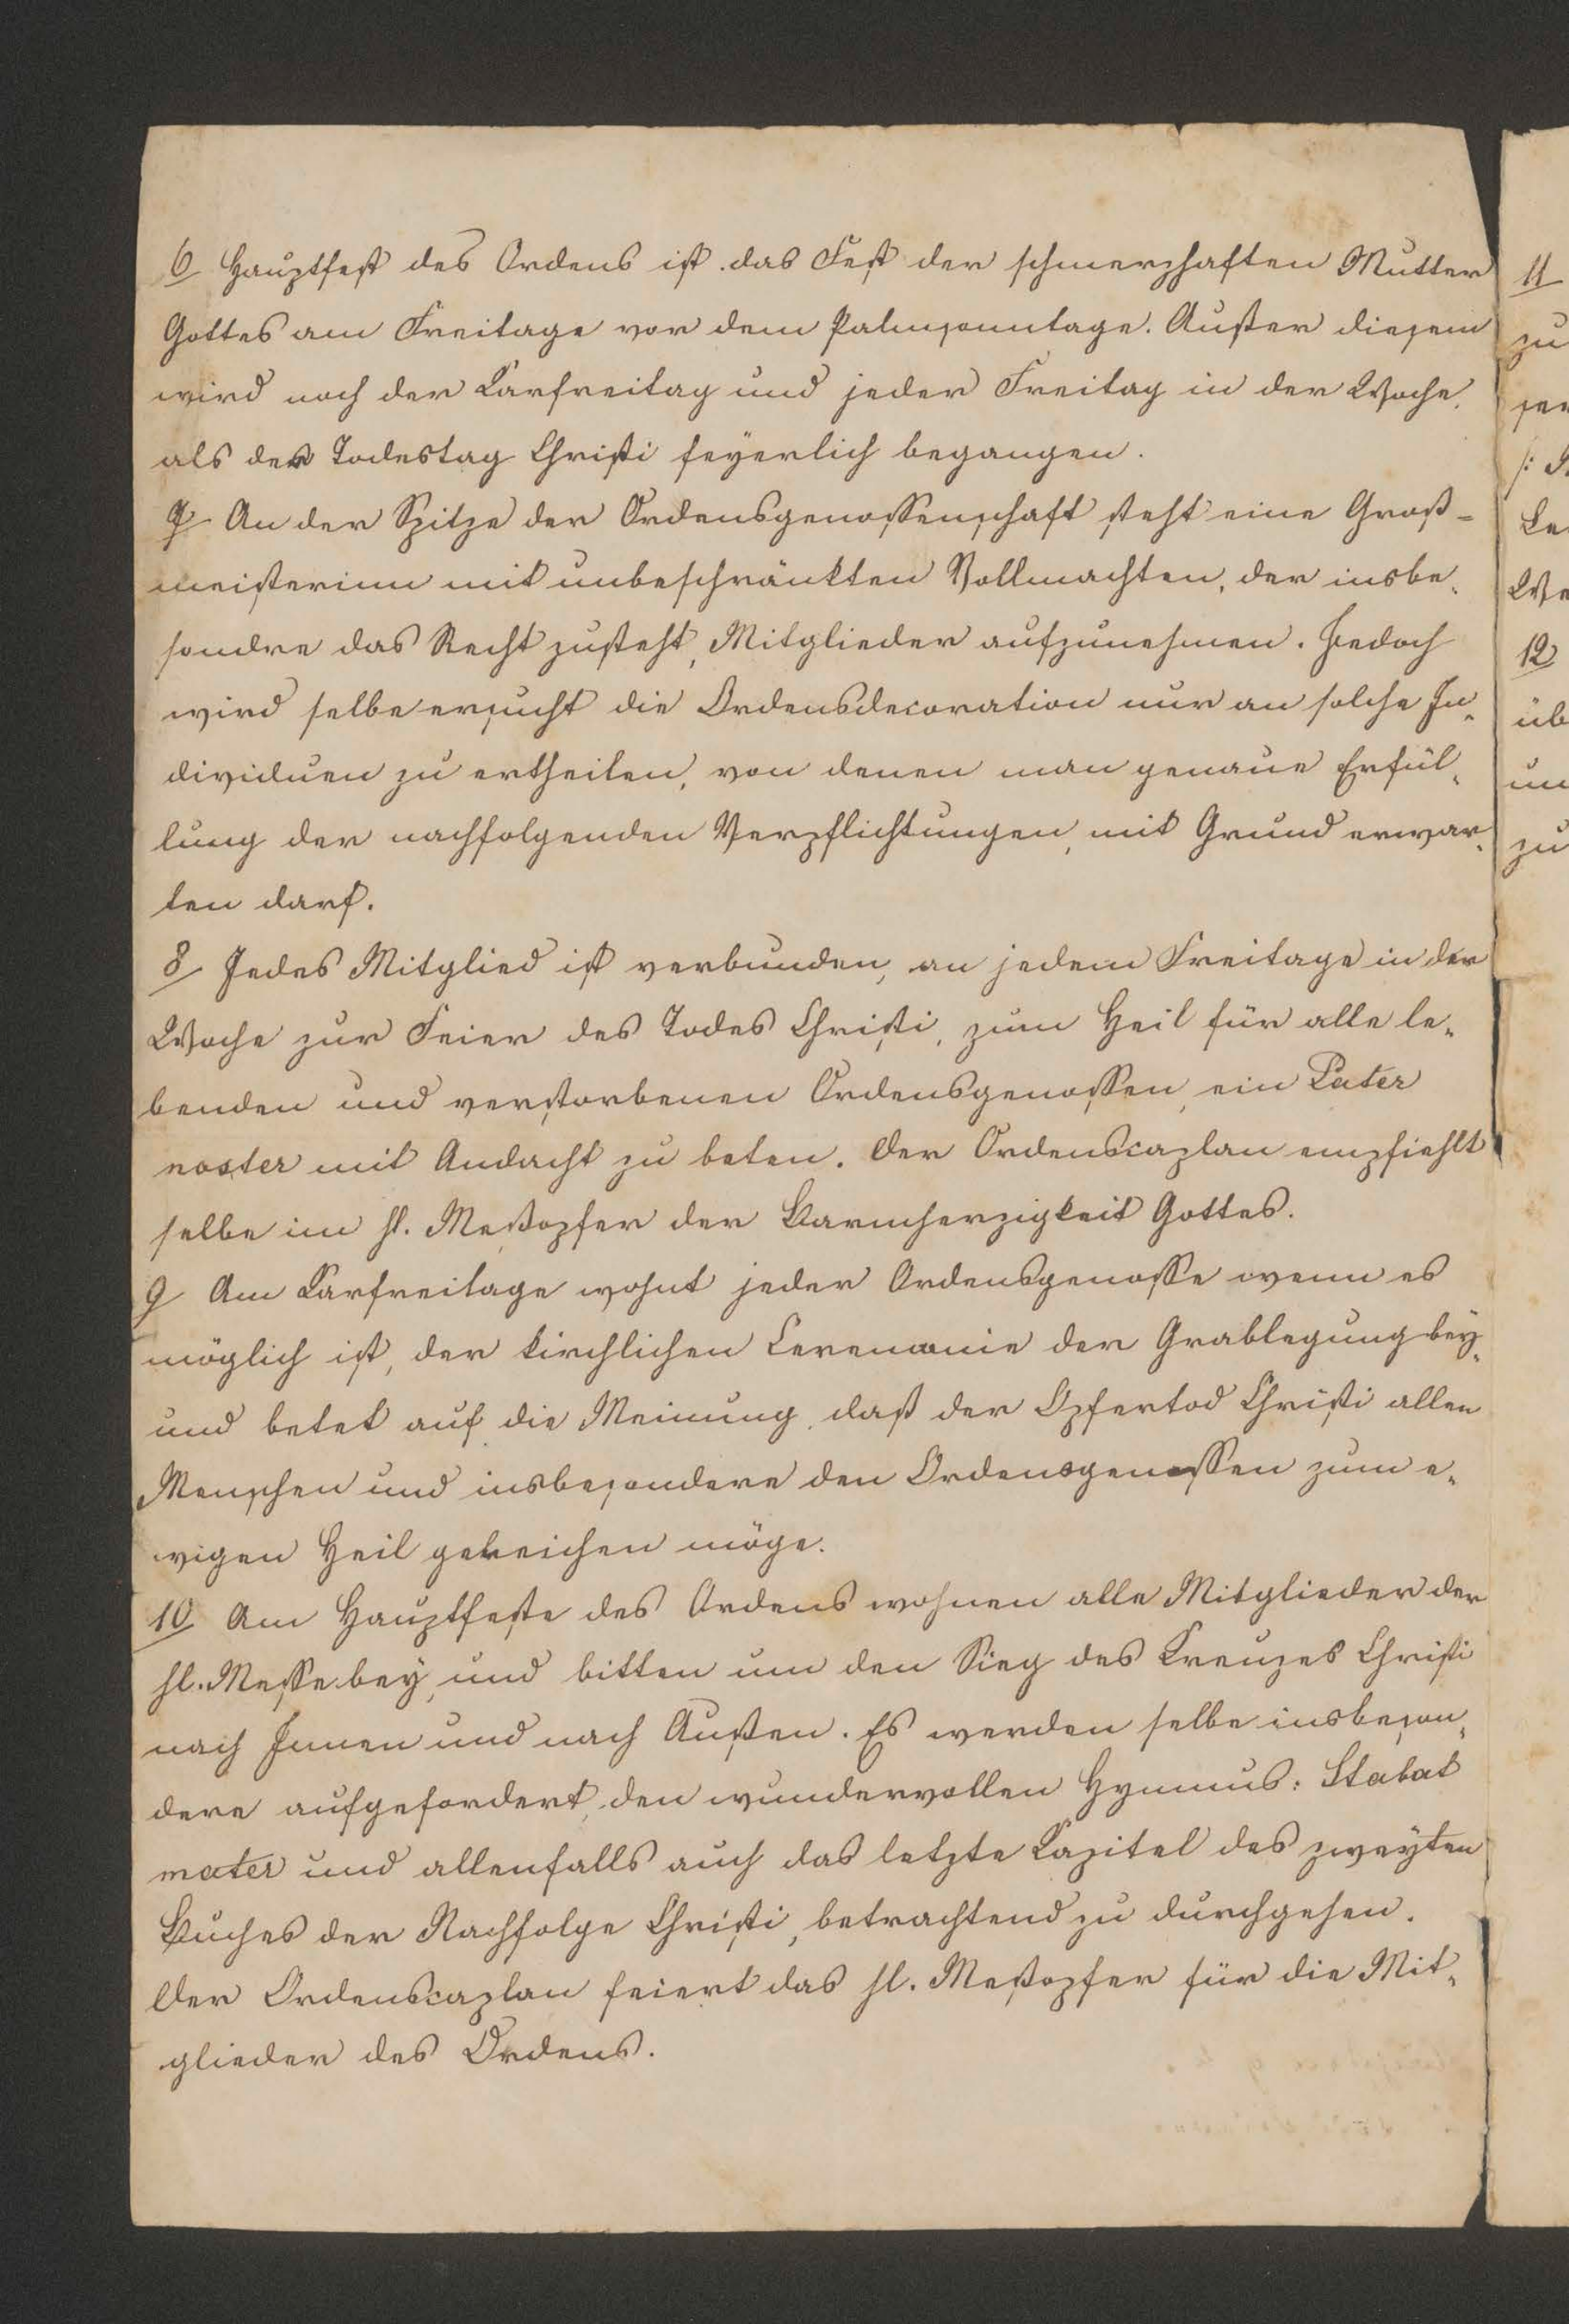 6 Hauptfest des Ordens ist das Fest der schmerzhaften Mutter
Gottes am Freitage vor dem Palmsonntage. Außer diesem
wird noch der Karfreitag und jeder Freitag in der Woche,
als der Todestag Christi feyerlich begangen.
7 An der Spitze der Ordensgenossenschaft steht eine Groß-
meisterinn mit unbeschränkten Vollmachten, der insbe-
sondre das Recht zusteht, Mitglieder aufzunehmen. Jedoch
wird selbe ersucht die Ordensdecoration nur an solche In-
dividuen zu ertheilen, von denen man genaue Erfül-
lung der nachfolgenden Verpflichtungen, mit Grund erwar-
ten darf.
8 Jedes Mitglied ist verbunden, an jedem Freitage in der
Woche zur Feier des Todes Christi, zum Heil für alle le-
benden und verstorbenen Ordensgenossen, ein Pater
noster mit Andacht zu beten. Der Ordenscaplan empfiehlt
selbe im hl. Meßopfer der Barmherzigkeit Gottes.
9 Am Karfreitage wohnt jeder Ordensgenosse wenn es
möglich ist, der kirchlichen Ceremonie der Grablegung bey,
und betet auf die Meinung, daß der Opfertod Christi allen
Menschen und insbesondere den Ordensgenossen zum e-
wigen Heil gereichen möge.
10 Am Hauptfeste des Ordens wohnen alle Mitglieder der
hl. Messe bey, und bitten um den Sieg des Kreuzes Christi
nach Innen und nach Außen. Es werden selbe insbeson-
dere aufgefordert, den wundervollen Hymnus: Stabat
mater und allenfalls auch das letzte Kapitel des zweyten
Buches der Nachfolge Christi, betrachtend zu durchgehen.
Der Ordenscaplan feiert das hl. Meßopfer für die Mit-
glieder des Ordens.
11
zu
ser
Le
We
12
üb
un
zu